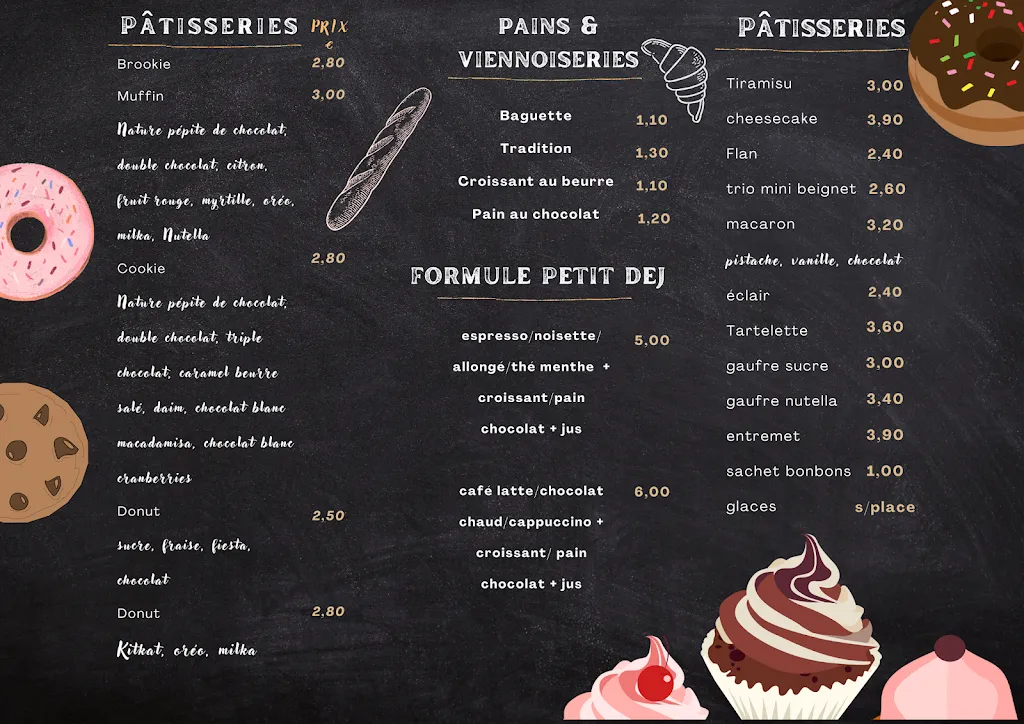 PÂTISSERIES PRIX
€
Brookie 2,80
Muffin 3,00
Nature pépite de chocolat,
double chocolat, citron,
fruit rouge, myrtille, oréo,
milka, Nutella
Cookie 2,80
Nature pépite de chocolat,
double chocolat, triple
chocolat, caramel beurre
salé, daim, chocolat blanc
macadamisa, chocolat blanc
cranberries
Donut 2,50
sucre, fraise, fiesta,
chocolat
Donut 2,80
Kitkat, oréo, milka
PAINS &
VIENNOISERIES
Baguette 1,10
Tradition 1,30
Croissant au beurre 1,10
Pain au chocolat 1,20
FORMULE PETIT DEJ
espresso/noisette/ 5,00
allongé/thé menthe +
croissant/pain
chocolat + jus
café latte/chocolat 6,00
chaud/cappuccino +
croissant/ pain
chocolat + jus
PÂTISSERIES
Tiramisu 3,00
cheesecake 3,90
Flan 2,40
trio mini beignet 2,60
macaron 3,20
pistache, vanille, chocolat
éclair 2,40
Tartelette 3,60
gaufre sucre 3,00
gaufre nutella 3,40
entremet 3,90
sachet bonbons 1,00
glaces s/place